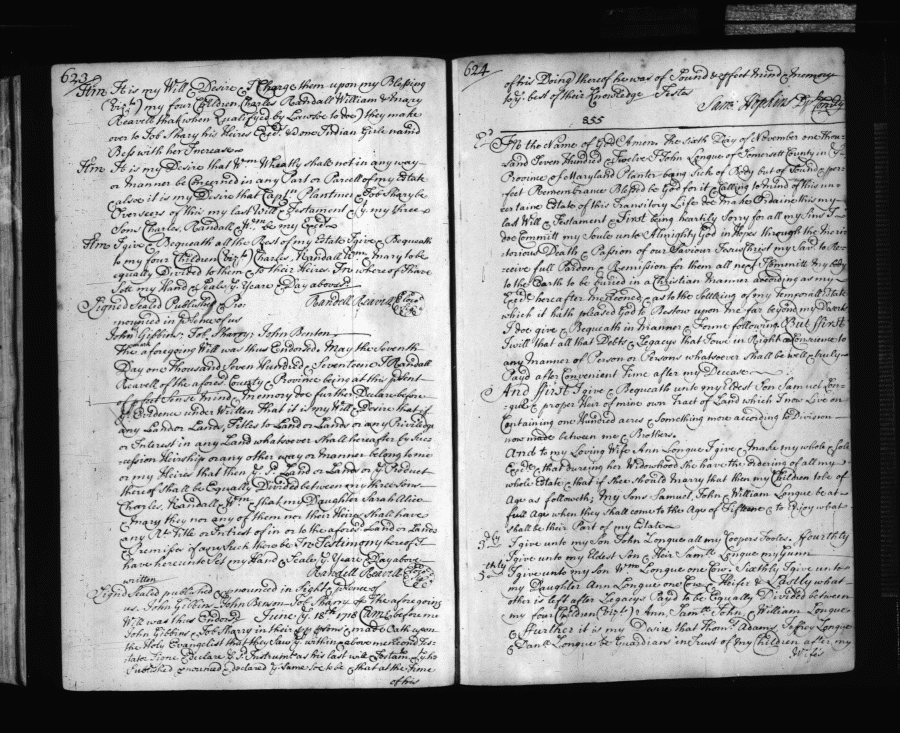 623
Itm It is my Will Desire & Charge them upon my Blessing
Vizt my four Children Charles Randall William & Mary
Reavell that when Qualifyed by Law so to doe they make
over to Job Shary his Heires Exrs &c one Indian Girle named
Bess with her Increase
Itm It is my Desire that Wm Wheatly shall not in any way
or manner be Concerned in any Part or Parcell of my Estate
also it is my Desire that Captn Plantinel & Job Shary be
Overseers of this my last Will & Testament & my three
Sons Charles, Randall & Wm be my Exrs
Itm I give & Bequeath all the Rest of my Estate I give & Bequeath
to my four Children Vizt Charles, Randall Wm & Mary to be
equally Divided to them & to their Heires. In where of I have
Sett my Hand & Seale ye Yeare & Day abovesd
Signed Seald Published & Pro
Randell Reavell
nounced in Presence of us
John Gibbins, Job Shary, John Benton
The aforegoing Will was thus Endorsed. May the Seventh
Day one Thousand Seven Hundred & Seventeen I Randall
Reavell of the afores. County & Province being at this present
of perfect Sense mind & Memory doe further Declare before
ye Evidence under Written that it is my Will & Desire that if
any Land or Lands, Titles to Land or Lands or any Priviledge
or Interest in any Land whatsoever shall hereafter by Suc
cession Heirship or any other way or manner belong to me
or my Heires that then ye sd Land or Lands or ye Product
there of shall be Equally Divided between my three Sons
Charles, Randall & Wm & that my Daughter Sarah Alice
& mary they nor any of them nor their Heirs shall have
any Rt Title or Intrest of in or to the aforesd Land or Lands
& Premises if any Such there be In Testimony here of I
have hereunto Set my Hand & Seale ye Yeare & Day above
written
Randell Reavell
Signd Seald published & pronounced in Sight & presence of
us. John Gibbins. John Benson. Job Shary of The aforegoing
Will was thus Endorsd June ye 18th 1718 Came before me
John Gibbins & Job Shary in their persons & made Oath upon
the Holy Evangelist that they Saw ye within above mentiond Tes
tator Signe & Declare ye sd Instrument as his last will &
Published pronounced & declared ye same soe to be & that at the Time
of his
624
of his Doing thereof he was of Sound & perfect mind & memory
to ye best of their Knowledge Testes
Saml Hopkins Dpt Comry
355
In the Name of God Amen. The Sixth Day of November one thou
sand Seven Hundred & Twelve I John Longue of Somersett County in ye
Province of Maryland Planter being Sick of Body but of Sound & per
fect Remembrance Blessed be God for it & Calling to mind of this un
certaine Estate of this Transitory Life doe make & Ordaine this my
last Will & Testament & First being heartily Sorry for all my Sins I
doe Committ my Soule unto Allmighty God in Hopes through the Merit
torious Death & Passion of our Saviour Jesus Christ my Sard to Re
ceive full Pardon & Remission for them all next I Committ my Body
to the Earth to be buried in a Christian Manner according as my
Exrs hereafter mentioned & as to the Settling of my temporall Estate
which it hath pleased God to Bestow upon me far beyond my Deserts
I doe give & Bequeath in Manner & Forme following. But first
I will that all that Debts & Legacys that I owe in Right & Conscience to
any Manner of Person or Persons whatsoever shall be well & truly
Payd after Convenient Time after my Decease
And first I give & Bequeath unto my Eldest Son Samuel Lon
gue & proper Heir of mine own Tract of Land which I now Live on
Containing one Hundred acres & Something more according to Division
now made between me & Brothers.
And to my Loving Wife Ann Longue I give & make my whole & Sole
Exrx that during her Widowhood She have the Ordering of all my
whole Estate & that if shee should marry that then my Children to be of
Age as followeth; My Sons Samuel, John & William Longue be at
full Age when they shall come to the Age of Fifteene & to Enjoy what
shall be their Part of my Estate
3dly I give unto my Son John Longue all my Coopers Tooles. fourthly
I give unto my Eldest Son & Heir Samll Longue my Gunn
5thly I give unto my Son Wm Longue one Cow. Sixthly I give unto
my Daughter Ann Longue one Cow & Heifer & Lastly what
other is left after Legacys Payd to be Equally Divided between
my four Children Vizt Ann, Samll John & William Longue
& further it is my Desire that Thoms Adams Jeffrey Longue
& Danll Longue be Guardians in Trust of my Children after my
Wife's